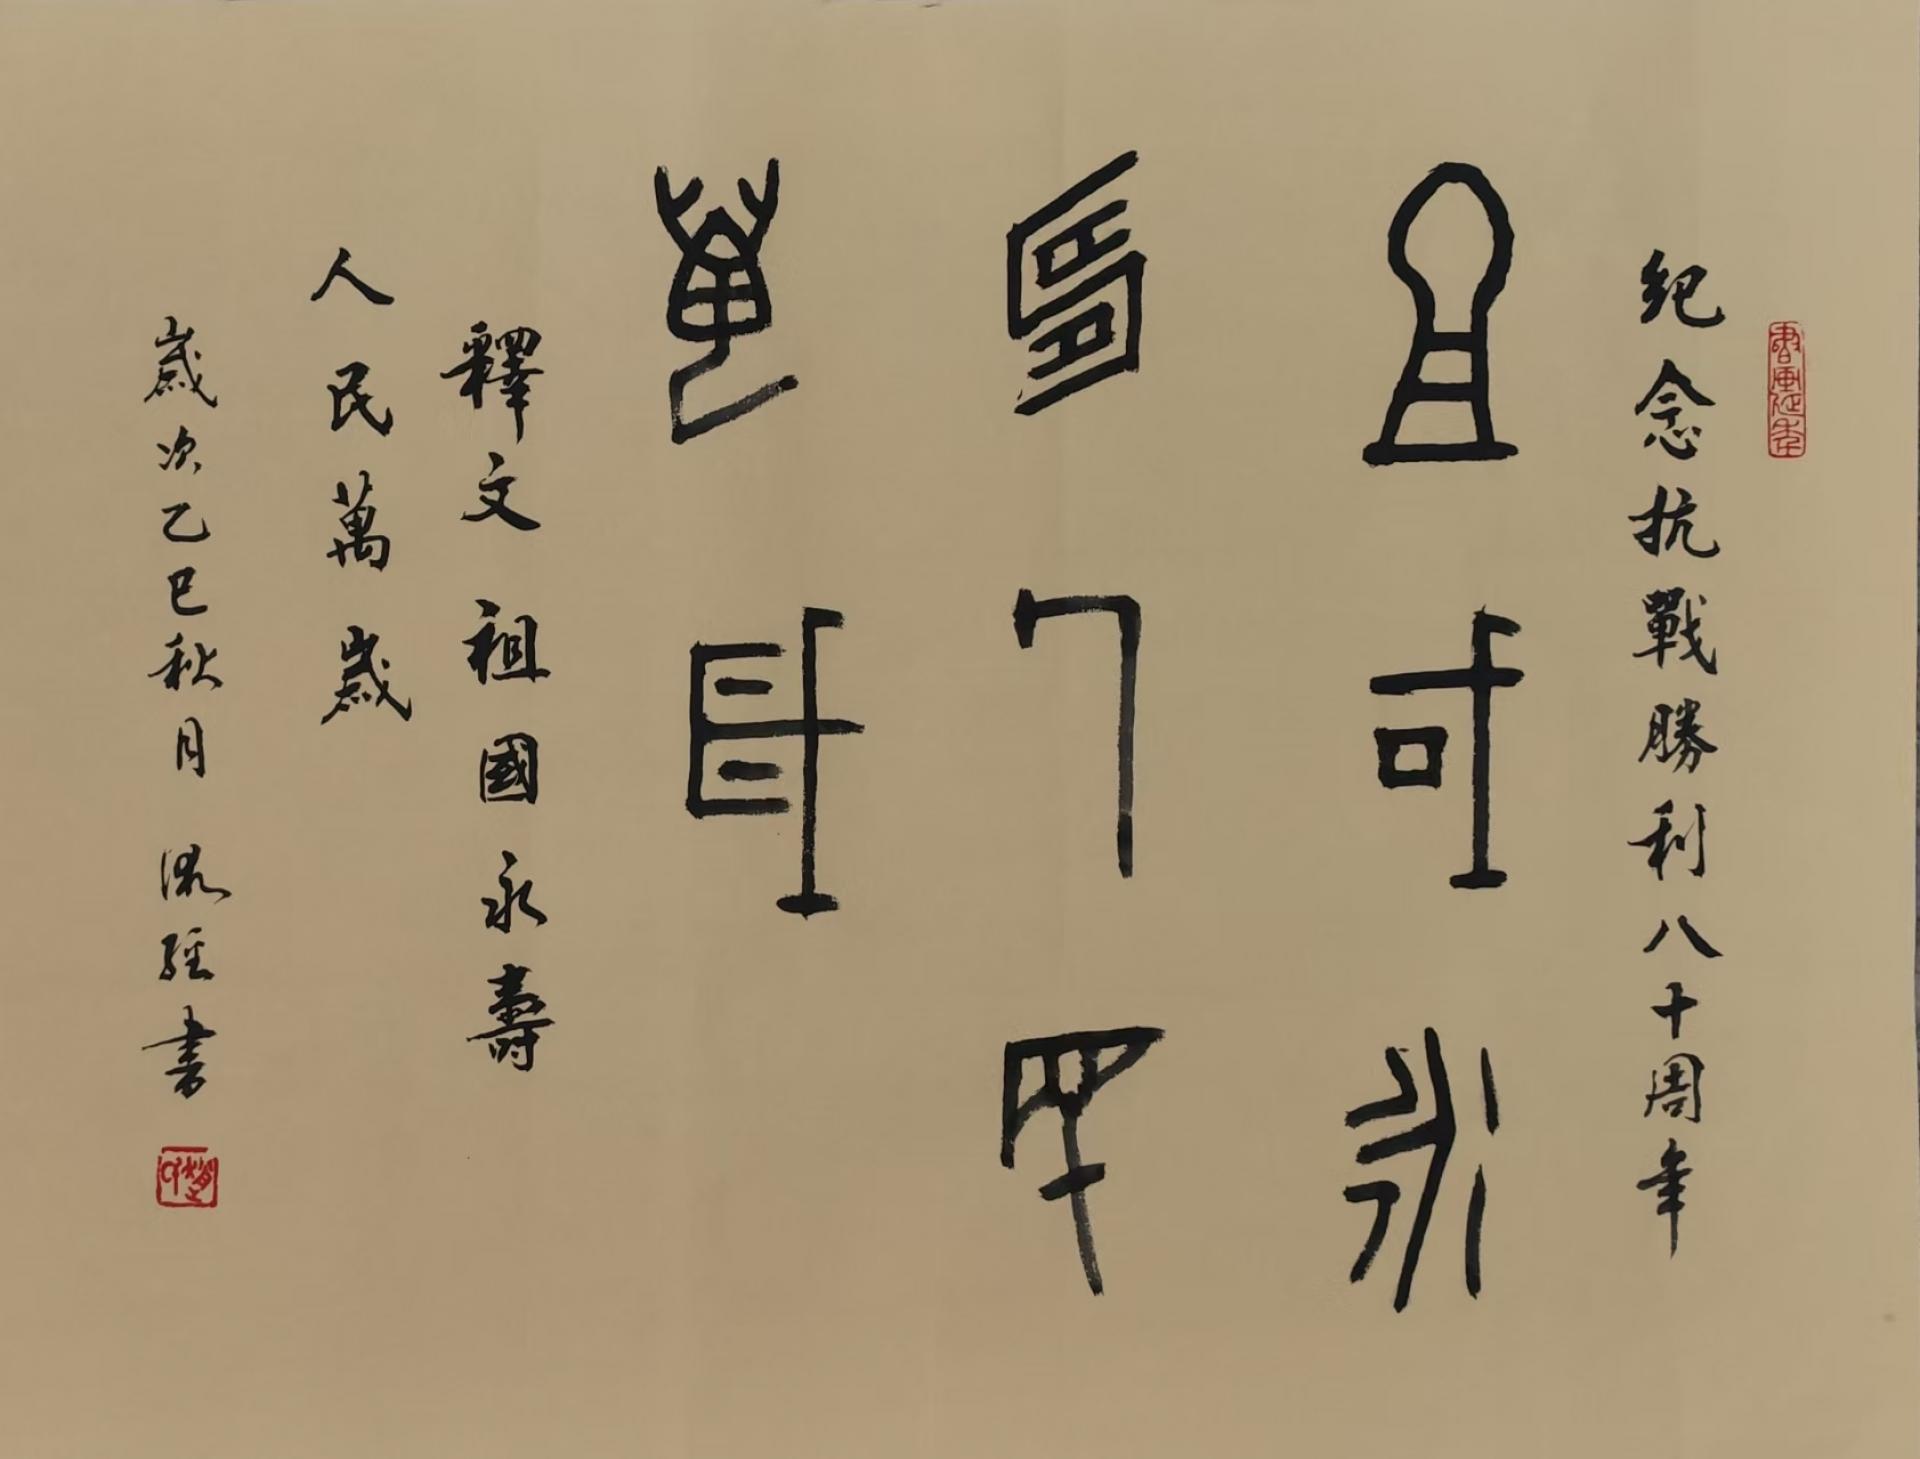 紀念抗戰勝利八十周年
祖國永
壽人民
萬歲
釋文祖國永壽
人民萬歲
歲次乙巳秋月 經書